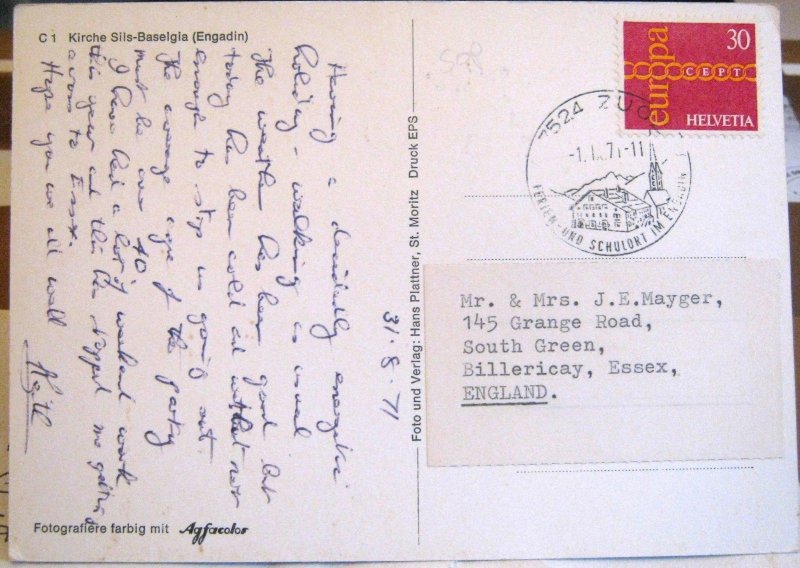 C 1 Kirche Sils-Baselgia (Engadin)
Having a decidedly energetic
holiday - walking as usual
The weather has been good but
today has been cold and wet but not
enough to stop us going out
The average age of the party
must be over 40
I have had a lot of weekend work
this year and this has stopped me getting
across to Essex.
Hope you are all well
Keith
31.8.71
Fotografiere farbig mit Agfacolor
Foto und Verlag: Hans Plattner, St. Moritz Druck EPS
europa
30
CEPT
HELVETIA
7524 ZUOZ
71-11
FERIEN- UND SCHULORT IM ENGADIN
Mr. & Mrs. J.E.Mayger,
145 Grange Road,
South Green,
Billericay, Essex,
ENGLAND.